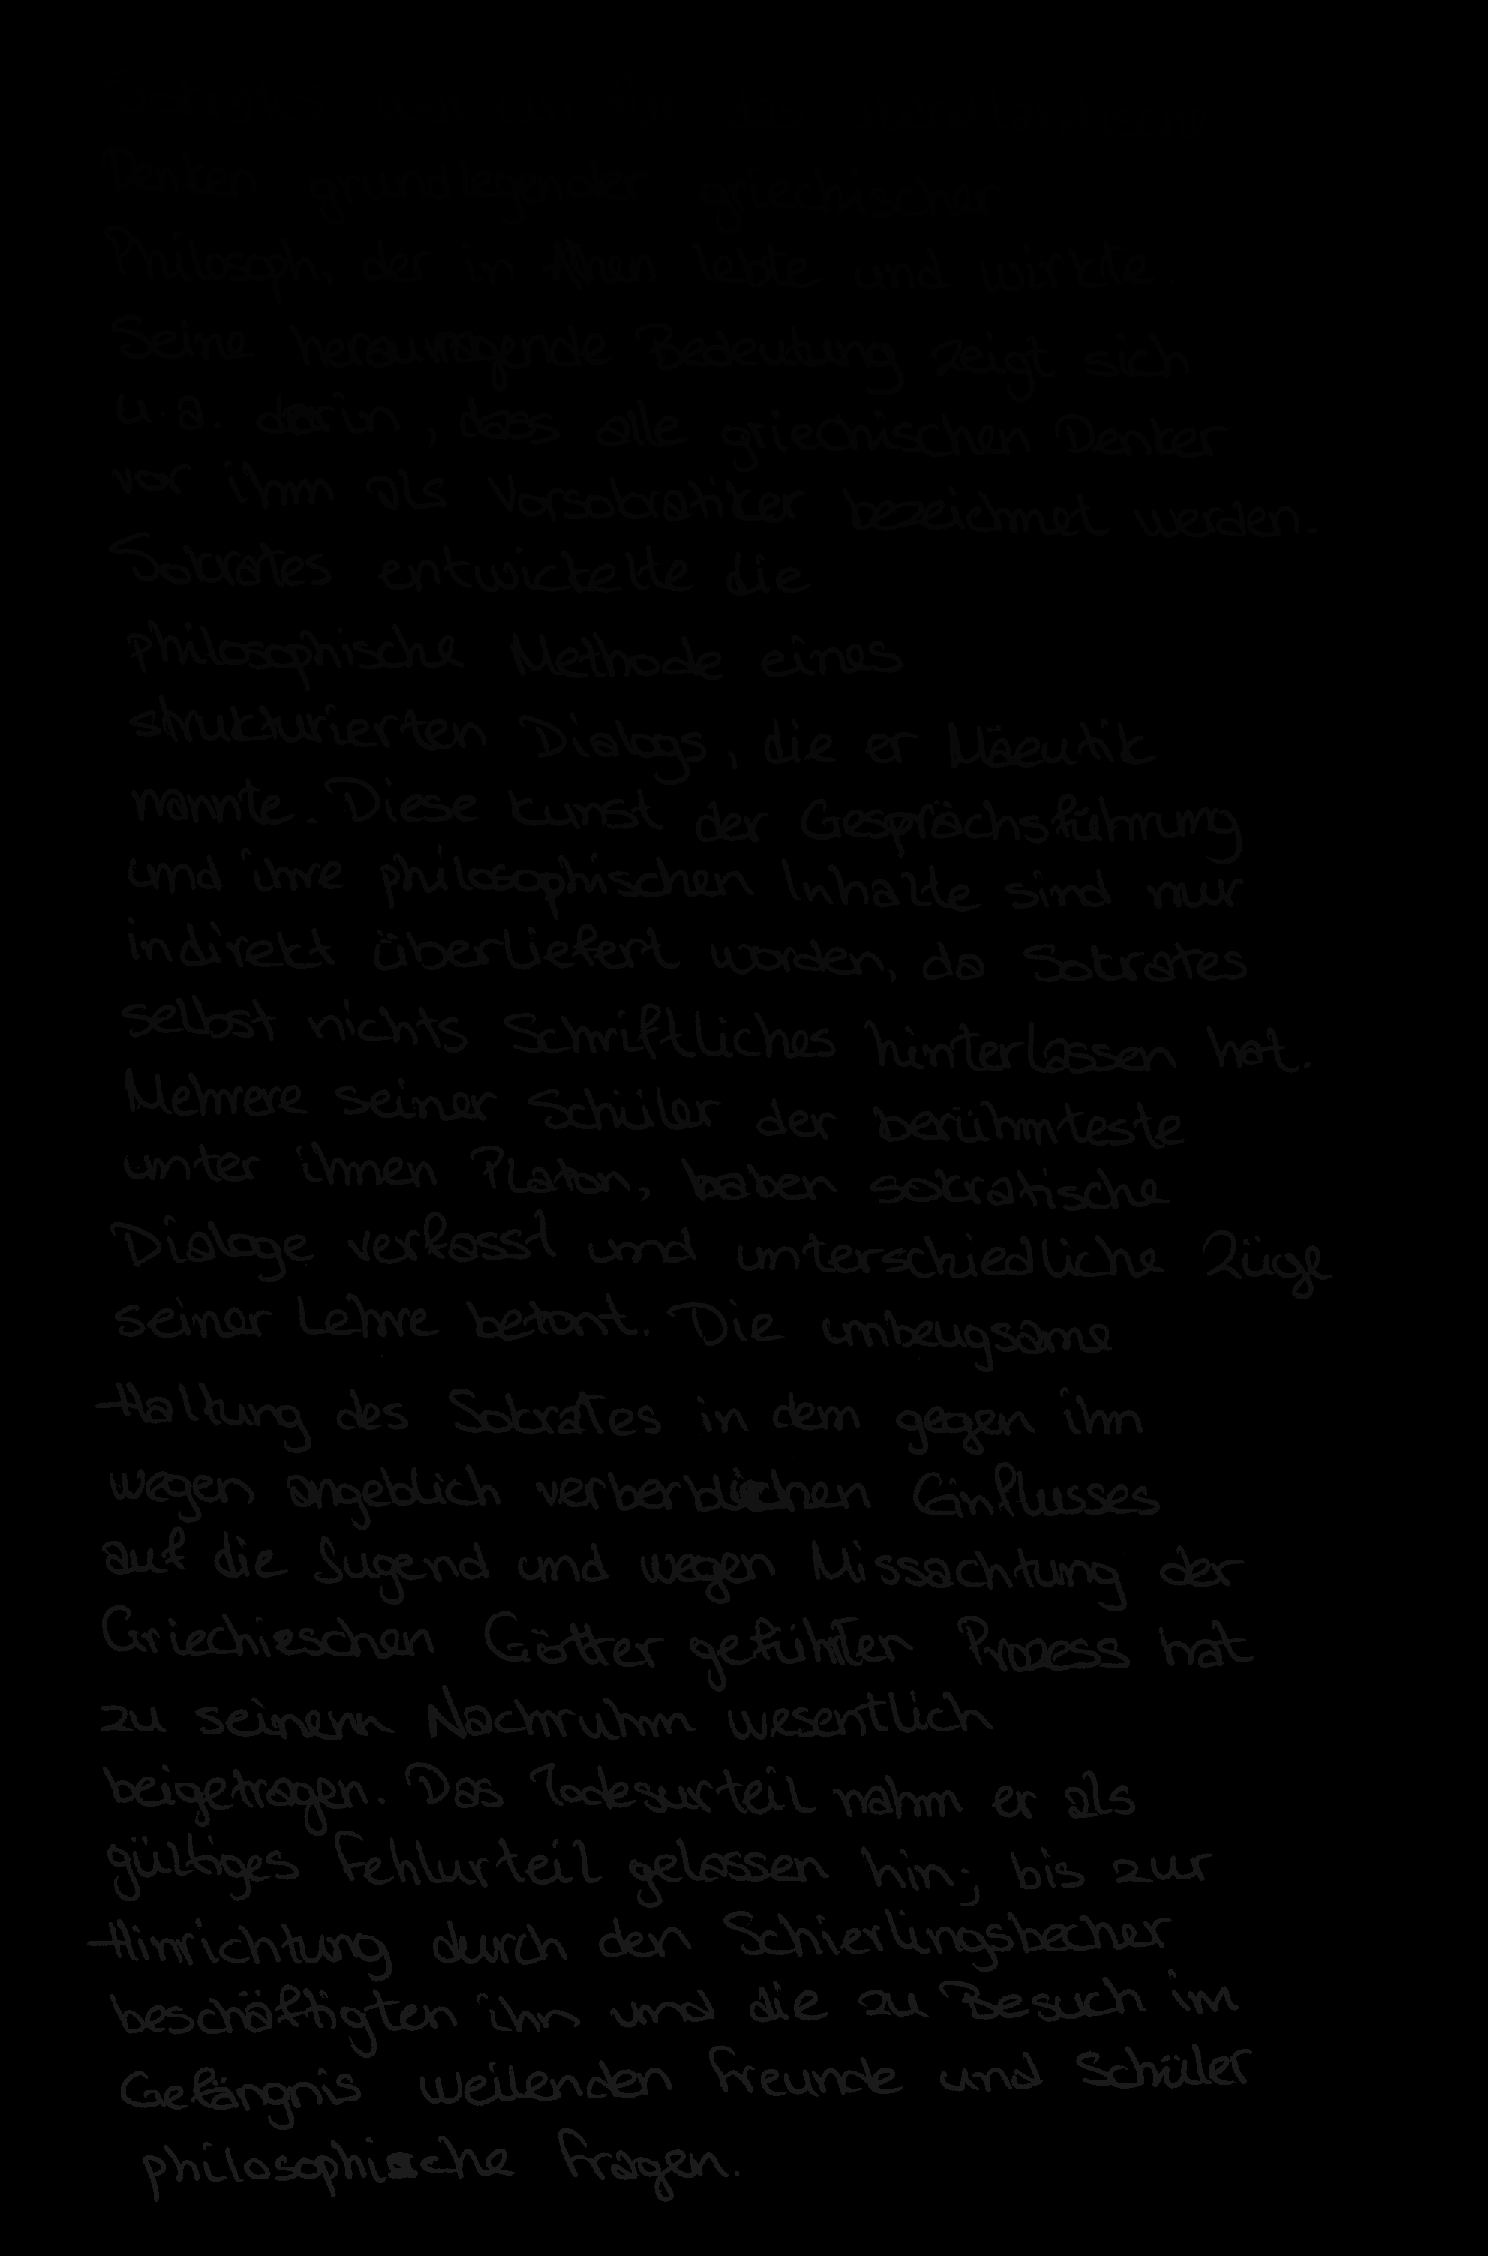 Sokrates war ein für das abendländische
Denken grundlegender griechischer
Philosoph, der in Athen lebte und wirkte.
Seine herausragende Bedeutung zeigt sich
u.a. darin, dass alle griechischen Denker
vor ihm als Vorsokratiker bezeichnet werden.
Sokrates entwickelte die
philosophische Methode eines
strukturierten Dialogs, die er Mäeutik
nannte. Diese Kunst der Gesprächsführung
und ihre philosophischen Inhalte sind nur
indirekt überliefert worden, da Sokrates
selbst nichts Schriftliches hinterlassen hat.
Mehrere seiner Schüler der berühmteste
unter ihnen Platon, haben sokratische
Dialoge verfasst und unterschiedliche Züge
seiner Lehre betont. Die unbeugsame
Haltung des Sokrates in dem gegen ihn
wegen angeblich verberblichen Einflusses
auf die Jugend und wegen Missachtung der
Griechischen Götter geführten Prozess hat
zu seinem Nachruhm wesentlich
beigetragen. Das Todesurteil nahm er als
gültiges Fehlurteil gelassen hin; bis zur
Hinrichtung durch den Schierlingsbecher
beschäftigten ihn und die zu Besuch im
Gefängnis weilenden Freunde und Schüler
philosophische Fragen.